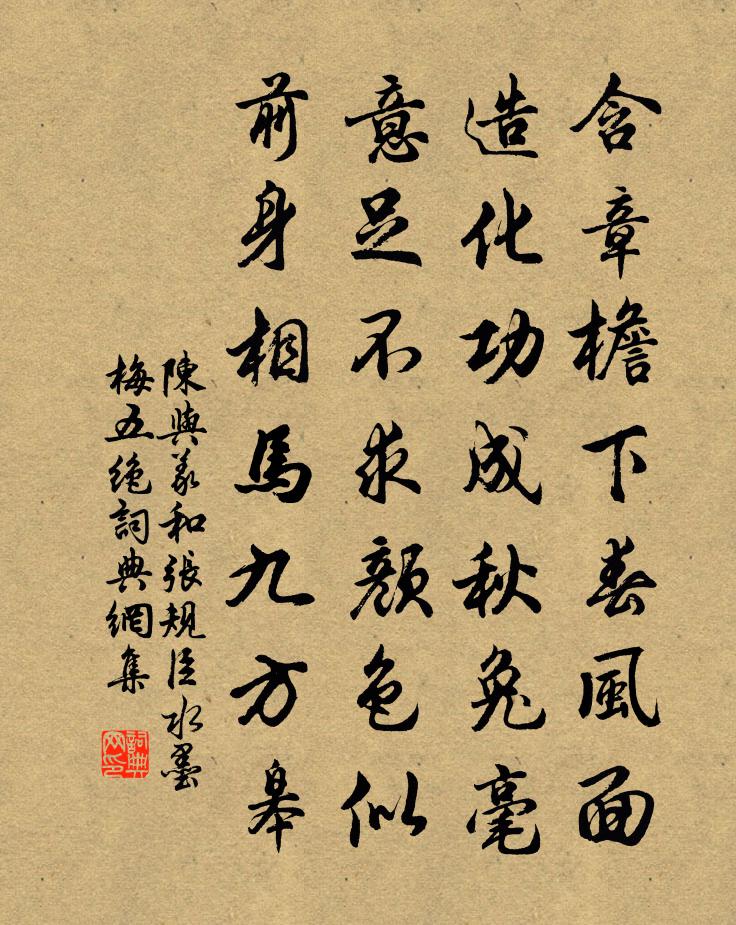 含章檐下春風面
造化功成秋兔毫
意足不求顏色似
前身相馬九方皋
陳與義和張規臣水墨
梅五絕詞典網集
詞典网印